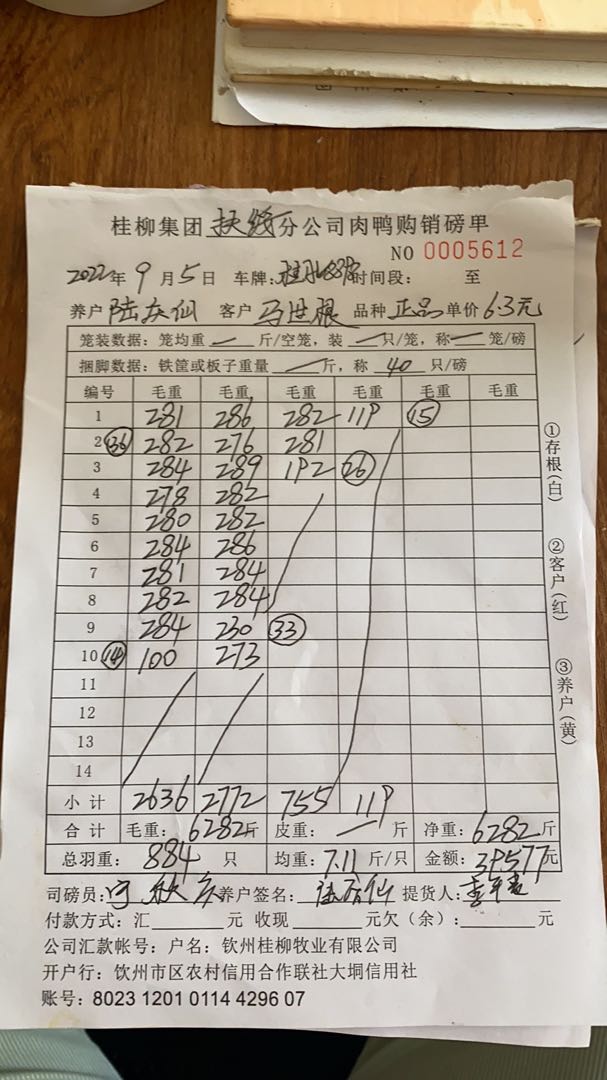 桂柳集团扶绥分公司肉鸭购销磅单
NO 0005612
2022年9月5日 车牌: 时间段: 至
养户 陆庆仙 客户 马世根 品种 正品 单价 6.3元
笼装数据: 笼均重 — 斤/空笼, 装 — 只/笼, 称 — 笼/磅
捆脚数据: 铁筐或板子重量 — 斤, 称 40 只/磅
编号 毛重 毛重 毛重 毛重 毛重 毛重
1 281 286 282 119 15
2 36 282 276 281
3 284 289 192 26
4 278 282
5 280 282
6 284 286
7 281 284
8 282 284
9 284 230 33
10 14 100 273
11
12
13
14
小计 2636 2772 755 119
合计 毛重: 6282斤 皮重: — 斤 净重: 6282斤
总羽重: 884 只 均重: 7.11 斤/只 金额: 39577元
司磅员: 养户签名: 陆庆仙 提货人:
付款方式: 汇 元 收现 元欠(余): 元
公司汇款帐号: 户名: 钦州桂柳牧业有限公司
开户行: 钦州市区农村信用合作联社大垌信用社
账号: 8023 1201 0114 4296 07
①存根(白)
②客户(红)
③养户(黄)